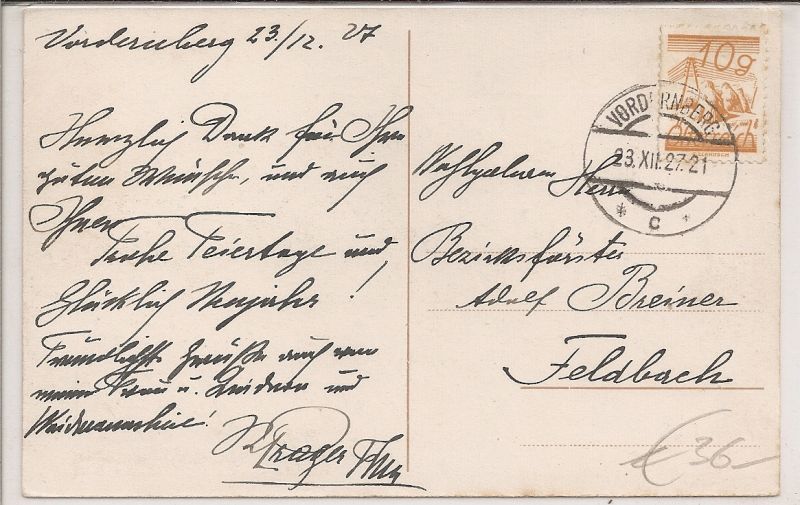 Vordernberg 23/12. 27
Herzlich Dank für Ihre
guten Wünsche, und auch
Ihnen
Frohe Feiertage und
Glücklich Neujahr!
Freundlichste Grüße auch von
meiner Frau u. Kindern und
Weidmannsheil!
Prager
10g
VORDERNBERG
23.XII.27.21
* C *
Wohlgeboren Herrn
Bezirksförster
Adolf Breiner
Feldbach
€ 36-